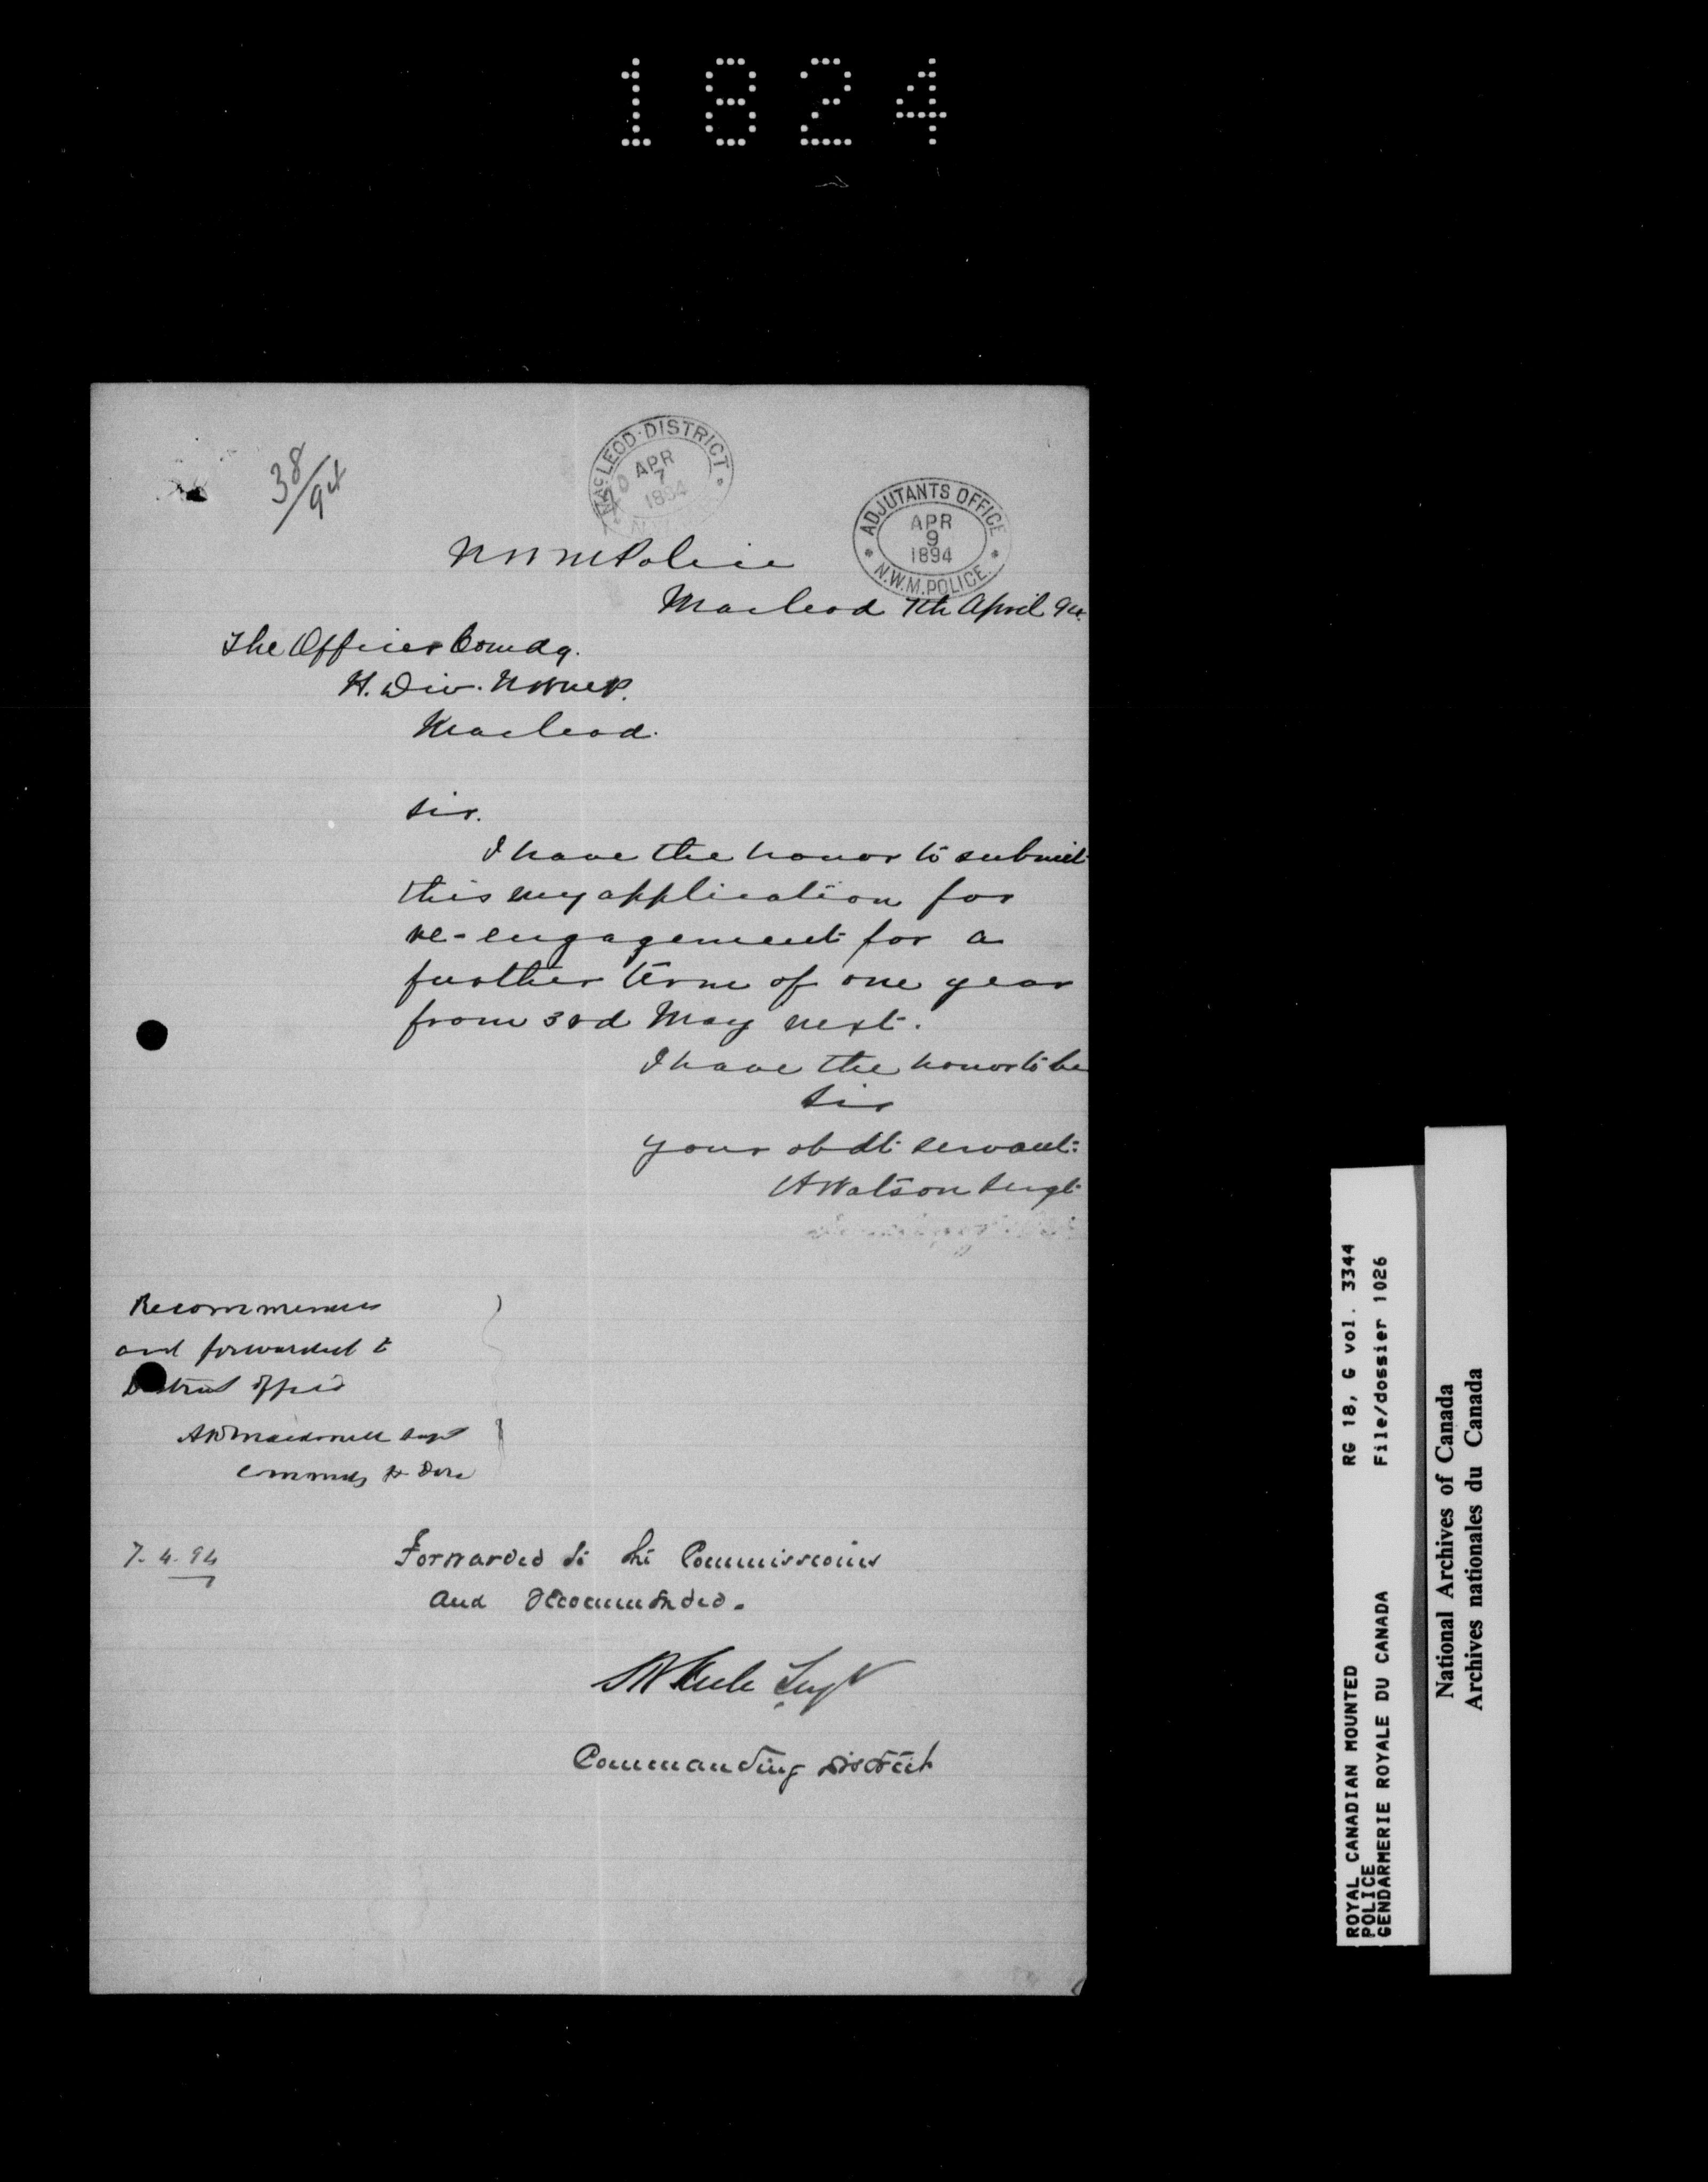 1824
38/94
MACLEOD DISTRICT
APR
7
1894
ADJUTANTS OFFICE
APR
9
1894
N.W.M. POLICE.
NWM Police
Macleod 7th April 94.
The Officer Comdg.
H. Div. NWMP.
Macleod.
Sir.
I have the honor to submit
this my application for
re-engagement for a
further term of one year
from 3rd May next.
I have the honor to be
Sir
your obdt servant
A Watson Sergt
Recommended
and forwarded to
District Office
AR Macdonell Supt
Commdg H Divn
7.4.94
Forwarded to the Commissioner
and recommended.
Supt
Commanding District
ROYAL CANADIAN MOUNTED
POLICE
GENDARMERIE ROYALE DU CANADA
RG 18, G vol. 3344
File/dossier 1026
National Archives of Canada
Archives nationales du Canada